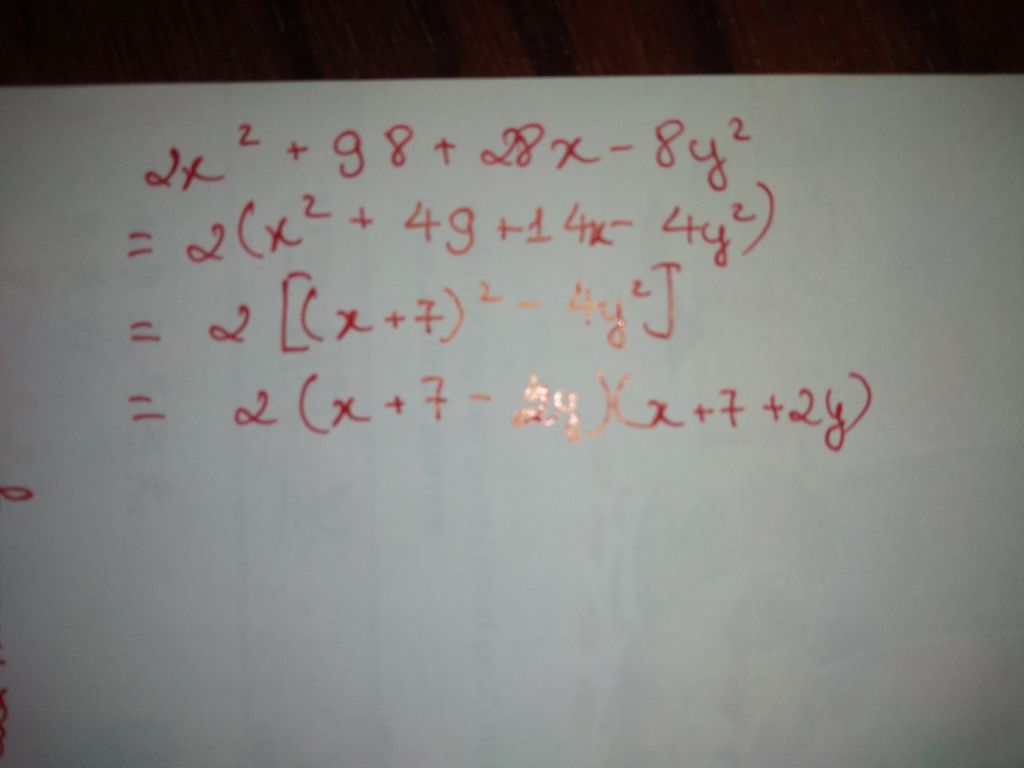 2x² + 98 + 28x - 8y²
= 2(x² + 49 + 14x - 4y²)
= 2[(x + 7)² - 4y²]
= 2(x + 7 - 2y)(x + 7 + 2y)